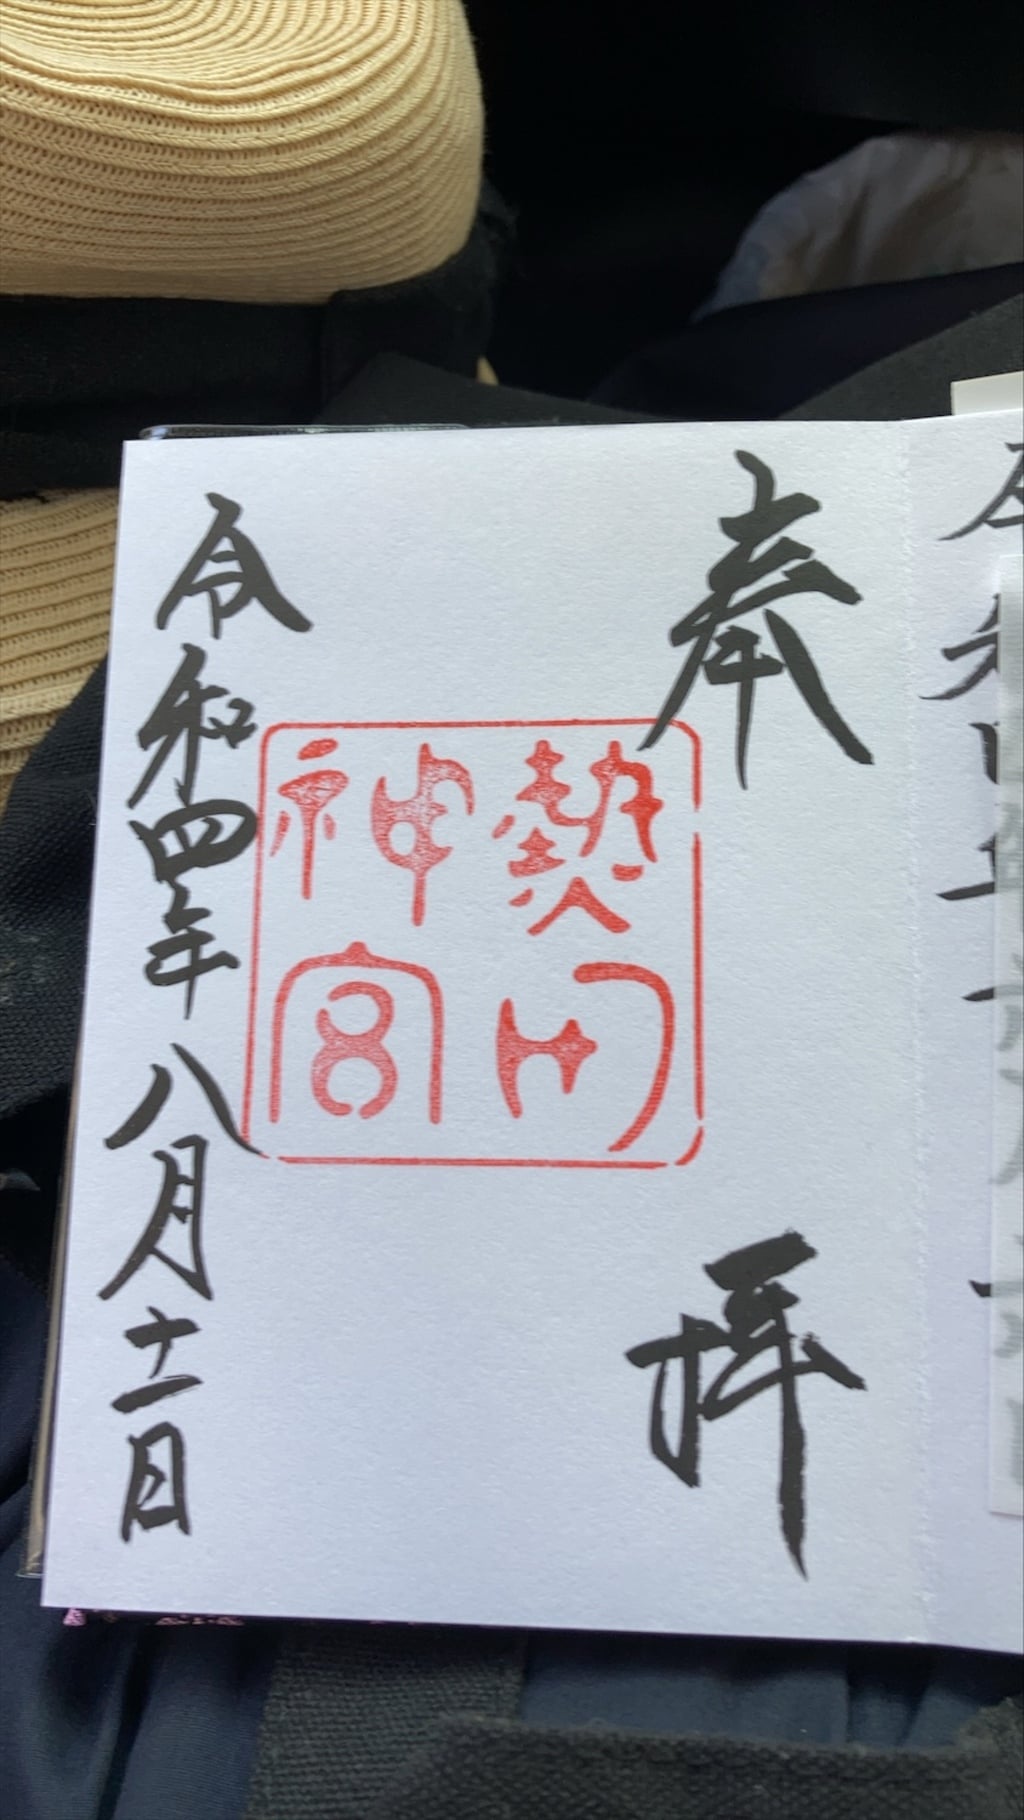 奉拝
熱田
神宮
令和四年八月十一日